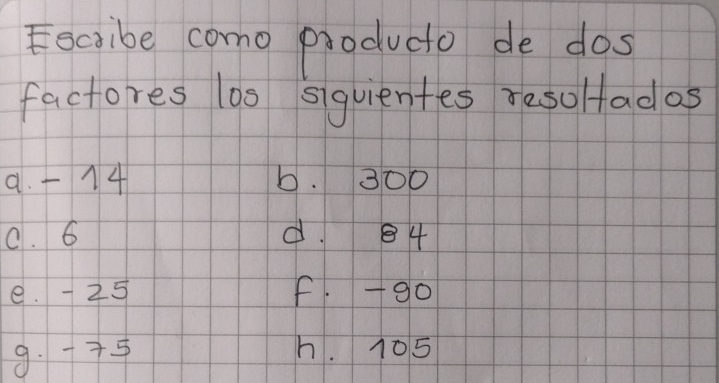 Escribe como producto de dos
factores los siguientes resultados
a. - 14 b. 300
c. 6 d. 84
e. - 25 f. -90
g. - 75 h. 105